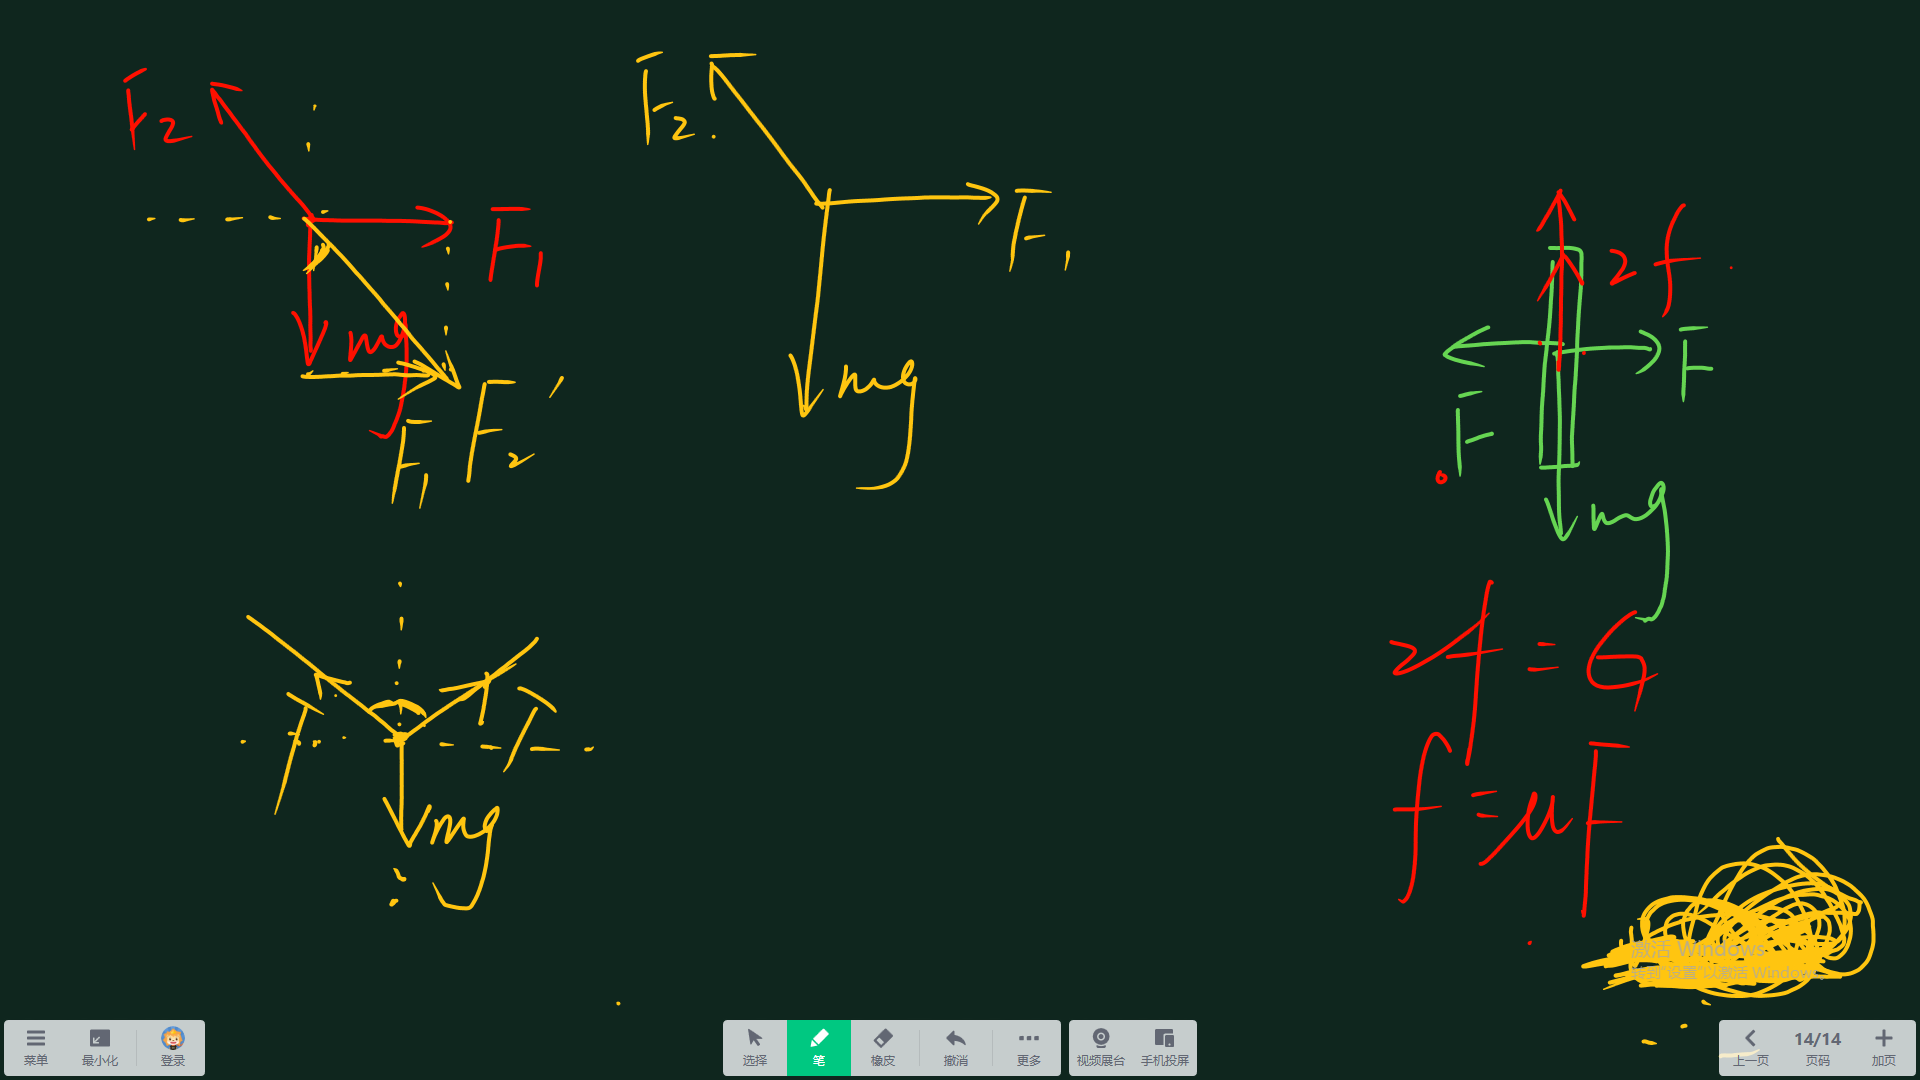 F2
F1
mg
F1
F2'
F2
F1
mg
2f
F
F
mg
2f=G
f=μF
F
F
mg
激活 Windows
转到"设置"以激活 Windows。
菜单
最小化
登录
选择
笔
橡皮
撤消
更多
视频展台
手机投屏
上一页
14/14
页码
加页